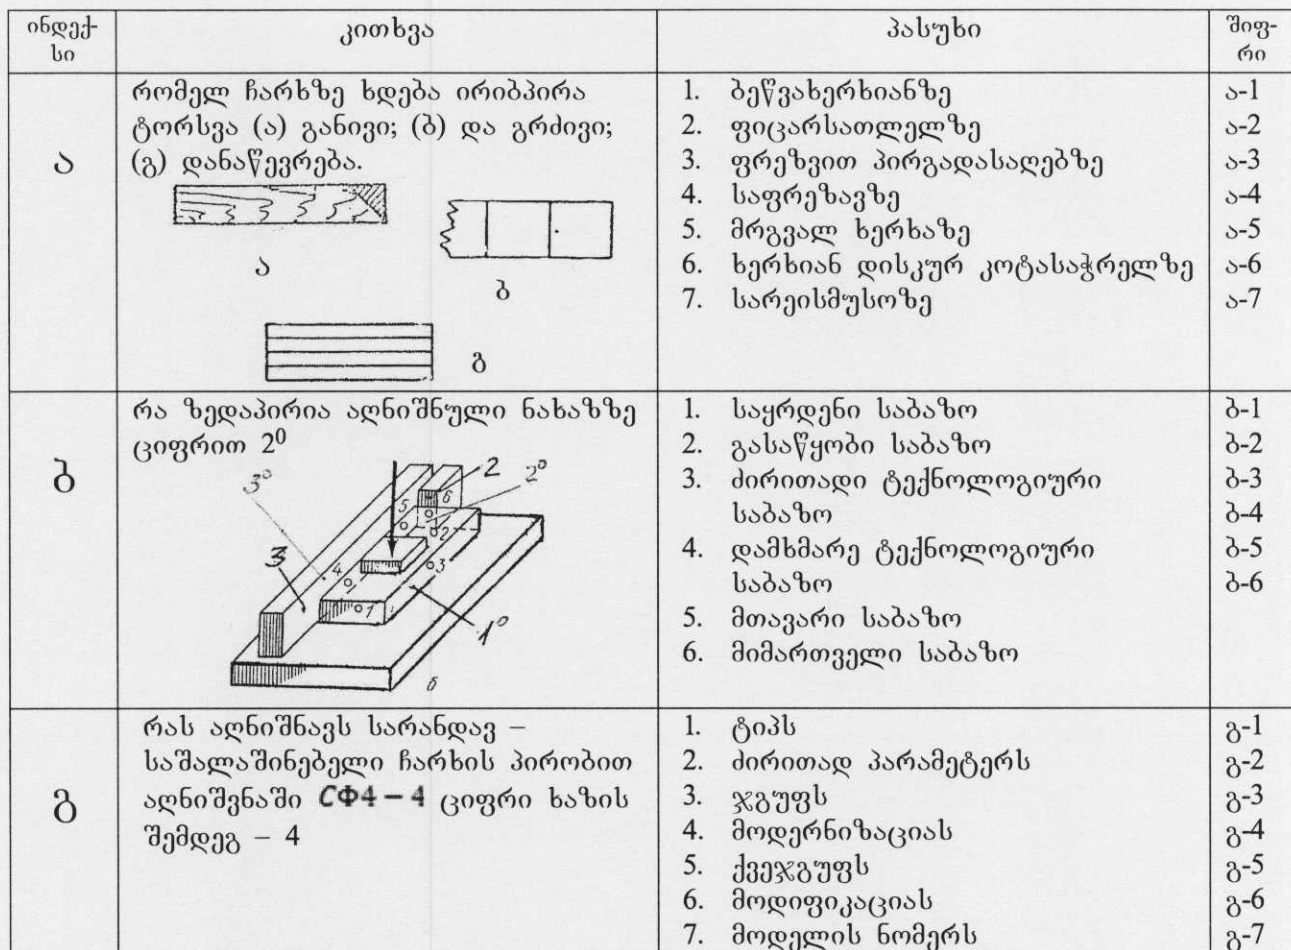 ინდექ- კითხვა პასუხი შიფ-
სი რი
ა
რომელ ჩარხზე ხდება ირიბპირა
ტორსვა (ა) განივი; (ბ) და გრძივი;
(გ) დანაწევრება.
ა
ბ
გ
1. ბეწვახერხიანზე ა-1
2. ფიცარსათლელზე ა-2
3. ფრეზვით პირგადასაღებზე ა-3
4. საფრეზავზე ა-4
5. მრგვალ ხერხაზე ა-5
6. ხერხიან დისკურ კოტასაჭრელზე ა-6
7. სარეისმუსოზე ა-7
ბ
რა ზედაპირია აღნიშნული ნახაზზე
ციფრით 2⁰
3⁰
2
2⁰
6
5
2
3
4
3
1
1⁰
б
1. საყრდენი საბაზო ბ-1
2. გასაწყობი საბაზო ბ-2
3. ძირითადი ტექნოლოგიური ბ-3
საბაზო ბ-4
4. დამხმარე ტექნოლოგიური ბ-5
საბაზო ბ-6
5. მთავარი საბაზო
6. მიმართველი საბაზო
გ
რას აღნიშნავს სარანდავ –
საშალაშინებელი ჩარხის პირობით
აღნიშვნაში СФ4 – 4 ციფრი ხაზის
შემდეგ – 4
1. ტიპს გ-1
2. ძირითად პარამეტერს გ-2
3. ჯგუფს გ-3
4. მოდერნიზაციას გ-4
5. ქვეჯგუფს გ-5
6. მოდიფიკაციას გ-6
7. მოდელის ნომერს გ-7